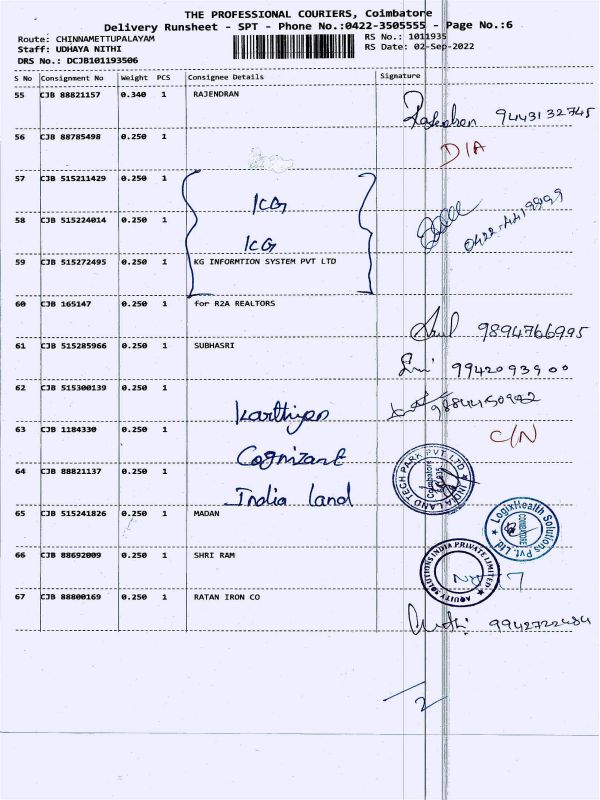 THE PROFESSIONAL COURIERS, Coimbatore
Delivery Runsheet - SPT - Phone No.:0422-3505555 - Page No.:6
Route: CHINNAMETTUPALAYAM
RS No.: 1011935
Staff: UDHAYA NITHI
RS Date: 02-Sep-2022
DRS No.: DCJB101193506
S No Consignment No Weight PCS Consignee Details Signature
55 CJB 88821157 0.340 1 RAJENDRAN
9443132745
56 CJB 88785498 0.250 1
D/A
57 CJB 515211429 0.250 1
KG
58 CJB 515224014 0.250 1
KG
59 CJB 515272495 0.250 1 KG INFORMTION SYSTEM PVT LTD
60 CJB 165147 0.250 1 for R2A REALTORS
9894766995
61 CJB 515285966 0.250 1 SUBHASRI
9942093900
62 CJB 515300139 0.250 1
Karthiyan
63 CJB 1184330 0.250 1
C/N
Cognizant
64 CJB 88821137 0.250 1
INDIALAND TECH PARK PVT LTD
Coimbatore
India land
65 CJB 515241826 0.250 1 MADAN
LogixHealth Solutions Pvt. Ltd.
COIMBATORE
66 CJB 88692009 0.250 1 SHRI RAM
AQUITY SOLUTIONS INDIA PRIVATE LIMITED
67 CJB 88800169 0.250 1 RATAN IRON CO
9942722484